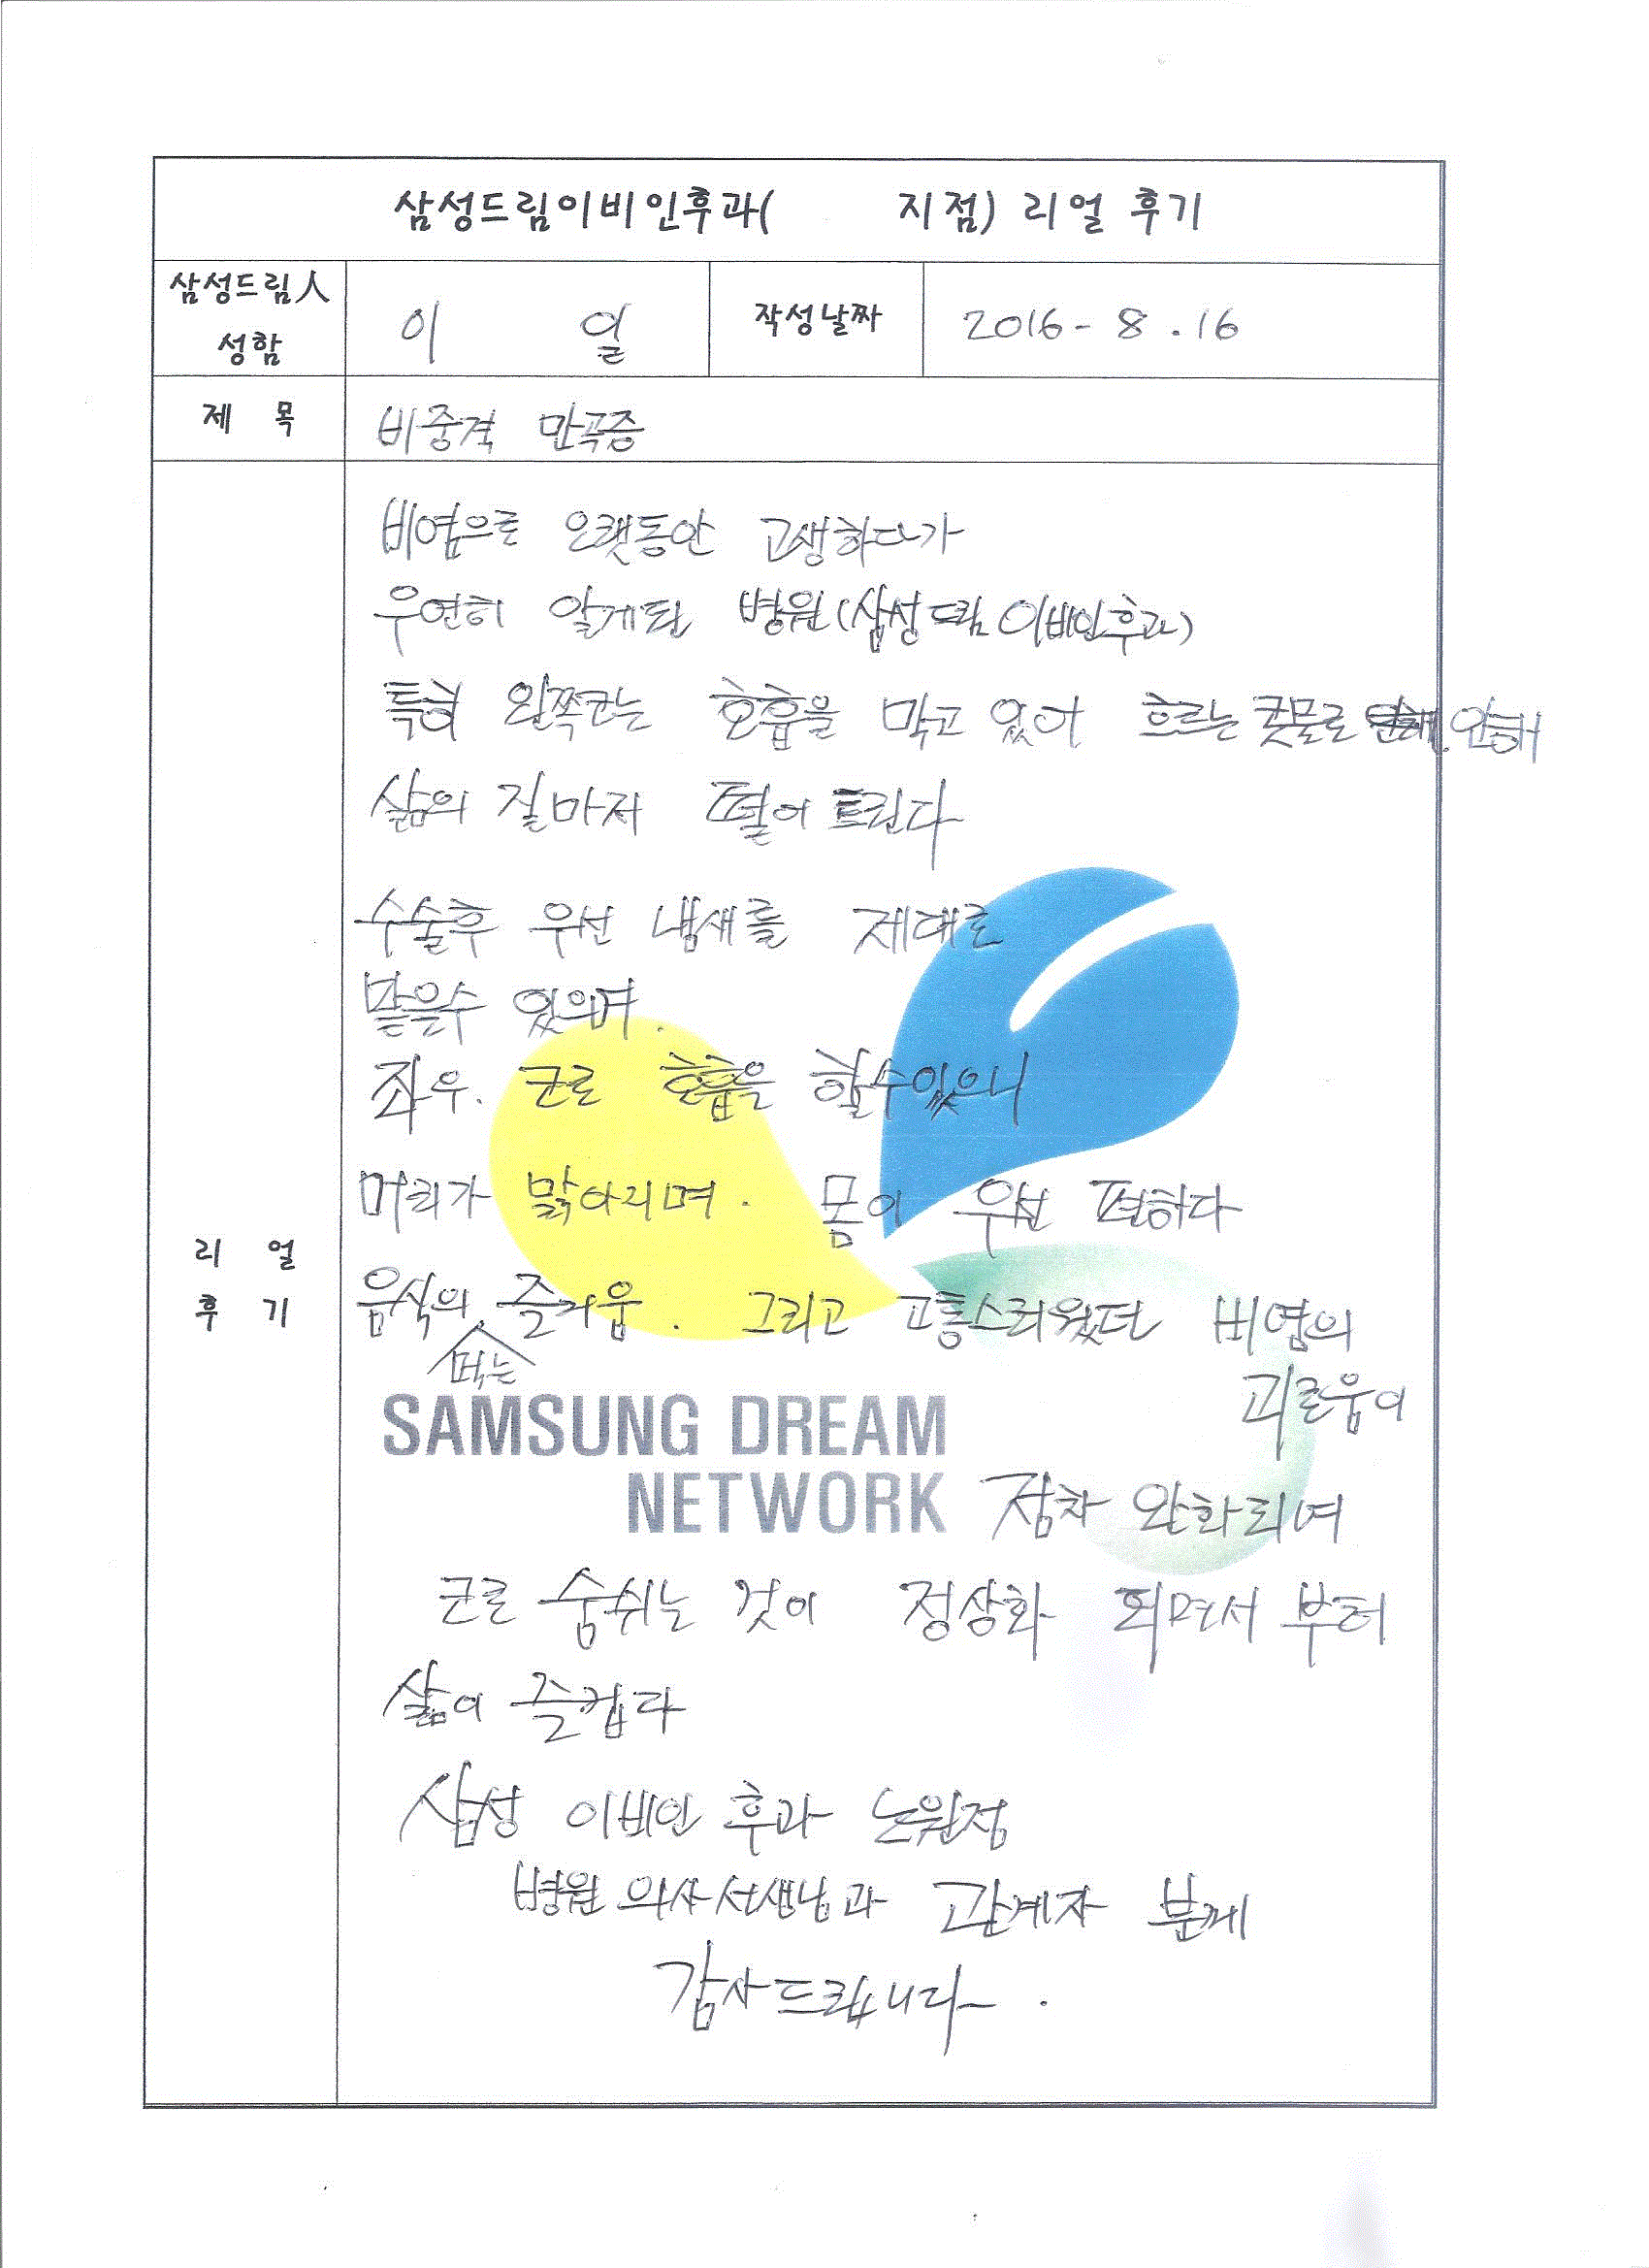 삼성드림이비인후과(          지점) 리얼 후기
삼성드림人
성함
이 일
작성날짜
2016-8.16
제 목
비중격 만곡증
리 얼
후 기
비염으로 오랫동안 고생하다가
우연히 알게된 병원(삼성드림 이비인후과)
특히 왼쪽코는 호흡을 막고 있어 흐르는 콧물로 인해
삶의 질마저 떨어트린다
수술후 우선 냄새를 제대로
맡을수 있으며.
좌우. 코로 호흡을 할수있으니
머리가 맑아지며. 몸이 우선 편하다
음식의 먹는 즐거움. 그리고 고통스러웠던 비염의
괴로움이
SAMSUNG DREAM
NETWORK
점차 완화되며
코로 숨쉬는 것이 정상화 되면서 부터
삶이 즐겁다
삼성 이비인 후과 노원점
병원 의사선생님과 관계자 분께
감사드립니다.